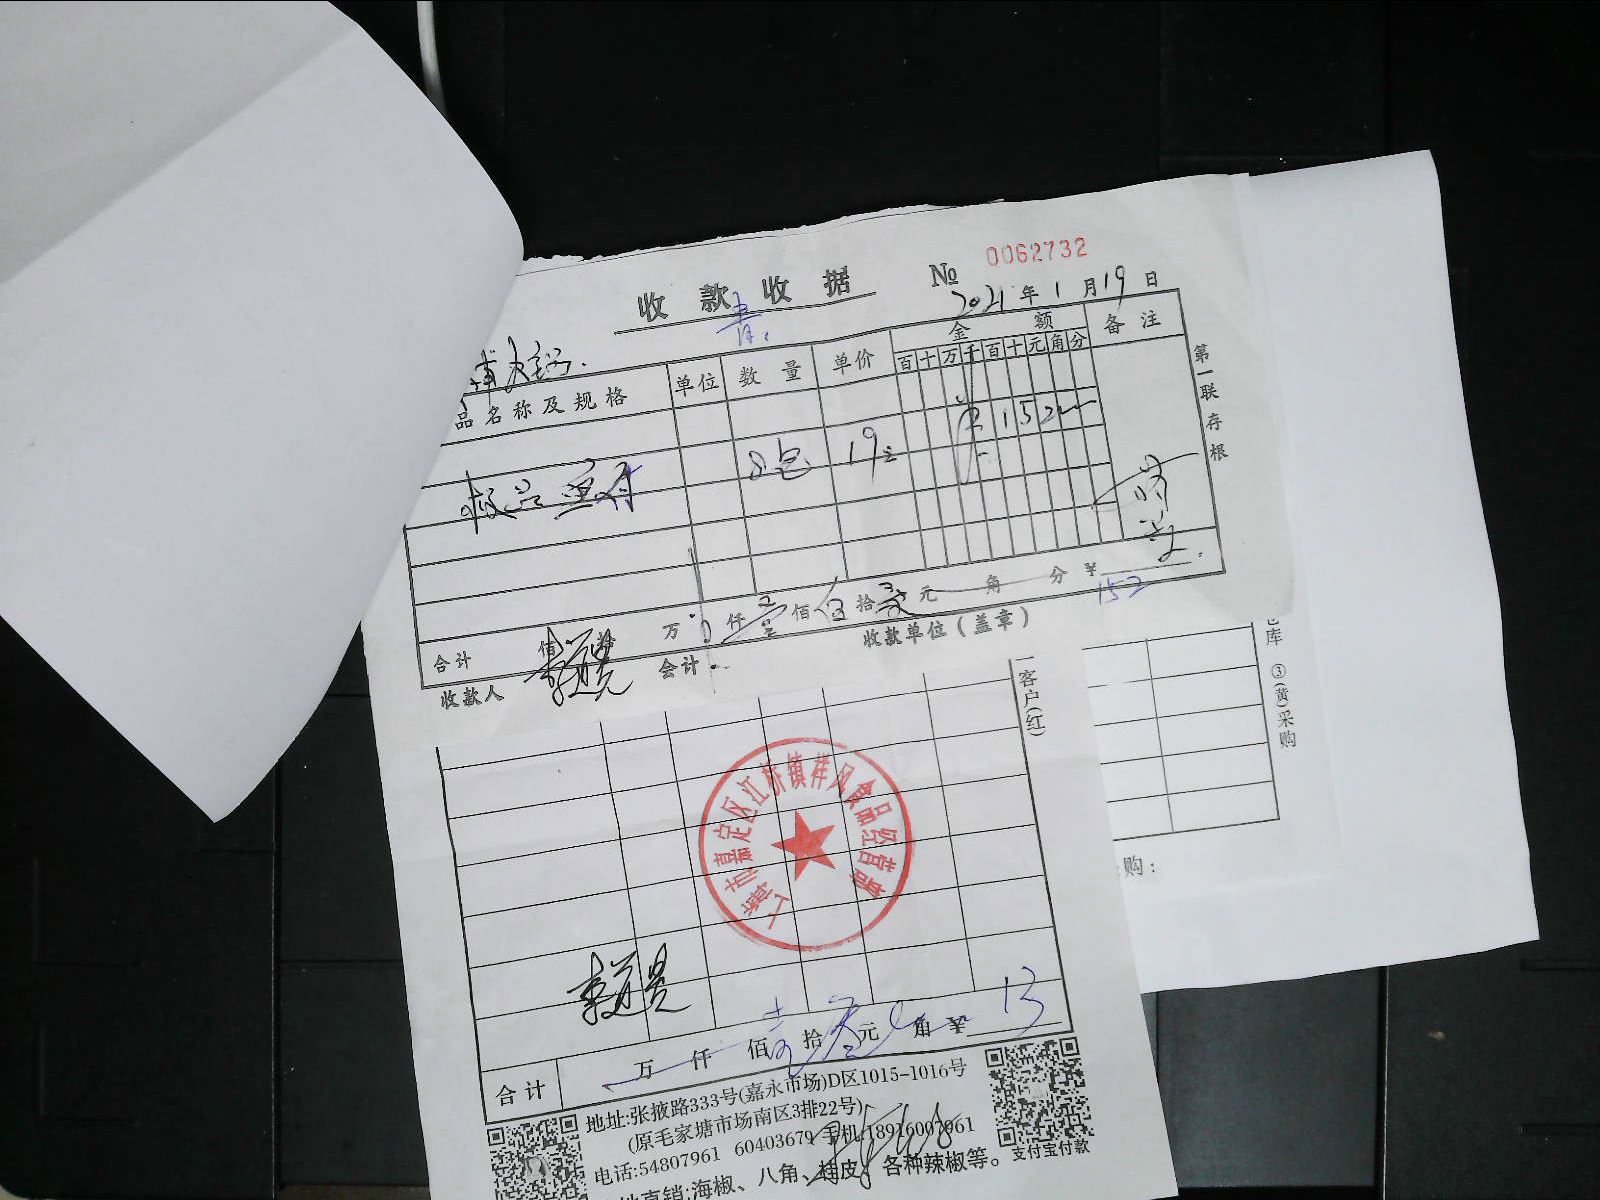 收款收据 № 0062732
2021年1月19日
品名称及规格 单位 数量 单价 金额 备注
百十万千百十元角分
8包 19元 152
第一联 存根
合计 佰 拾 万 仟壹佰伍拾贰元 角 分 ¥152
收款人 会计 收款单位(盖章)
客户(红)
库 ③(黄)采购
购:
上海市嘉定区江桥镇祥风食品经营部
合计 万 仟 佰壹拾叁元 角 ¥ 13
地址:张掖路333号(嘉永市场)D区1015-1016号
(原毛家塘市场南区3排22号)
电话:54807961 60403679 手机:18916007961
地直销:海椒、八角、桂皮、各种辣椒等。
支付宝付款